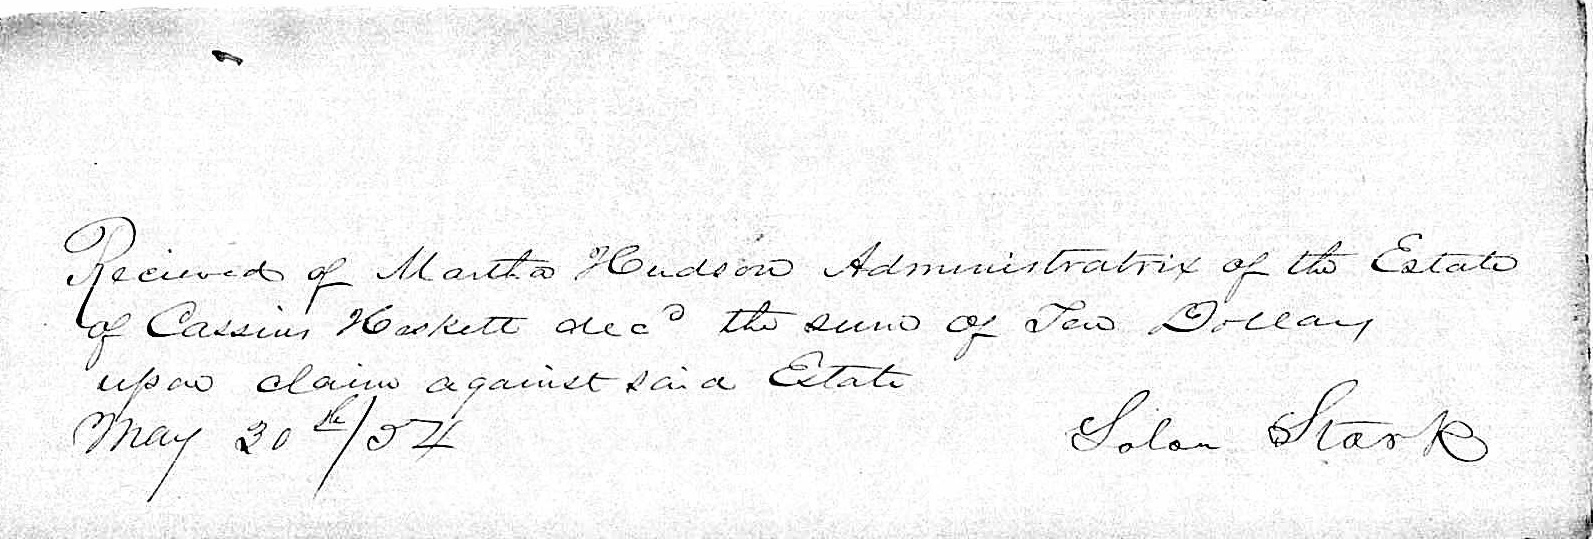 Recieved of Martha Hudson Administratrix of the Estate
of Cassius Haskett decd the sum of Ten Dollars
upon claim against said Estate
May 30th/54
Solon Stark